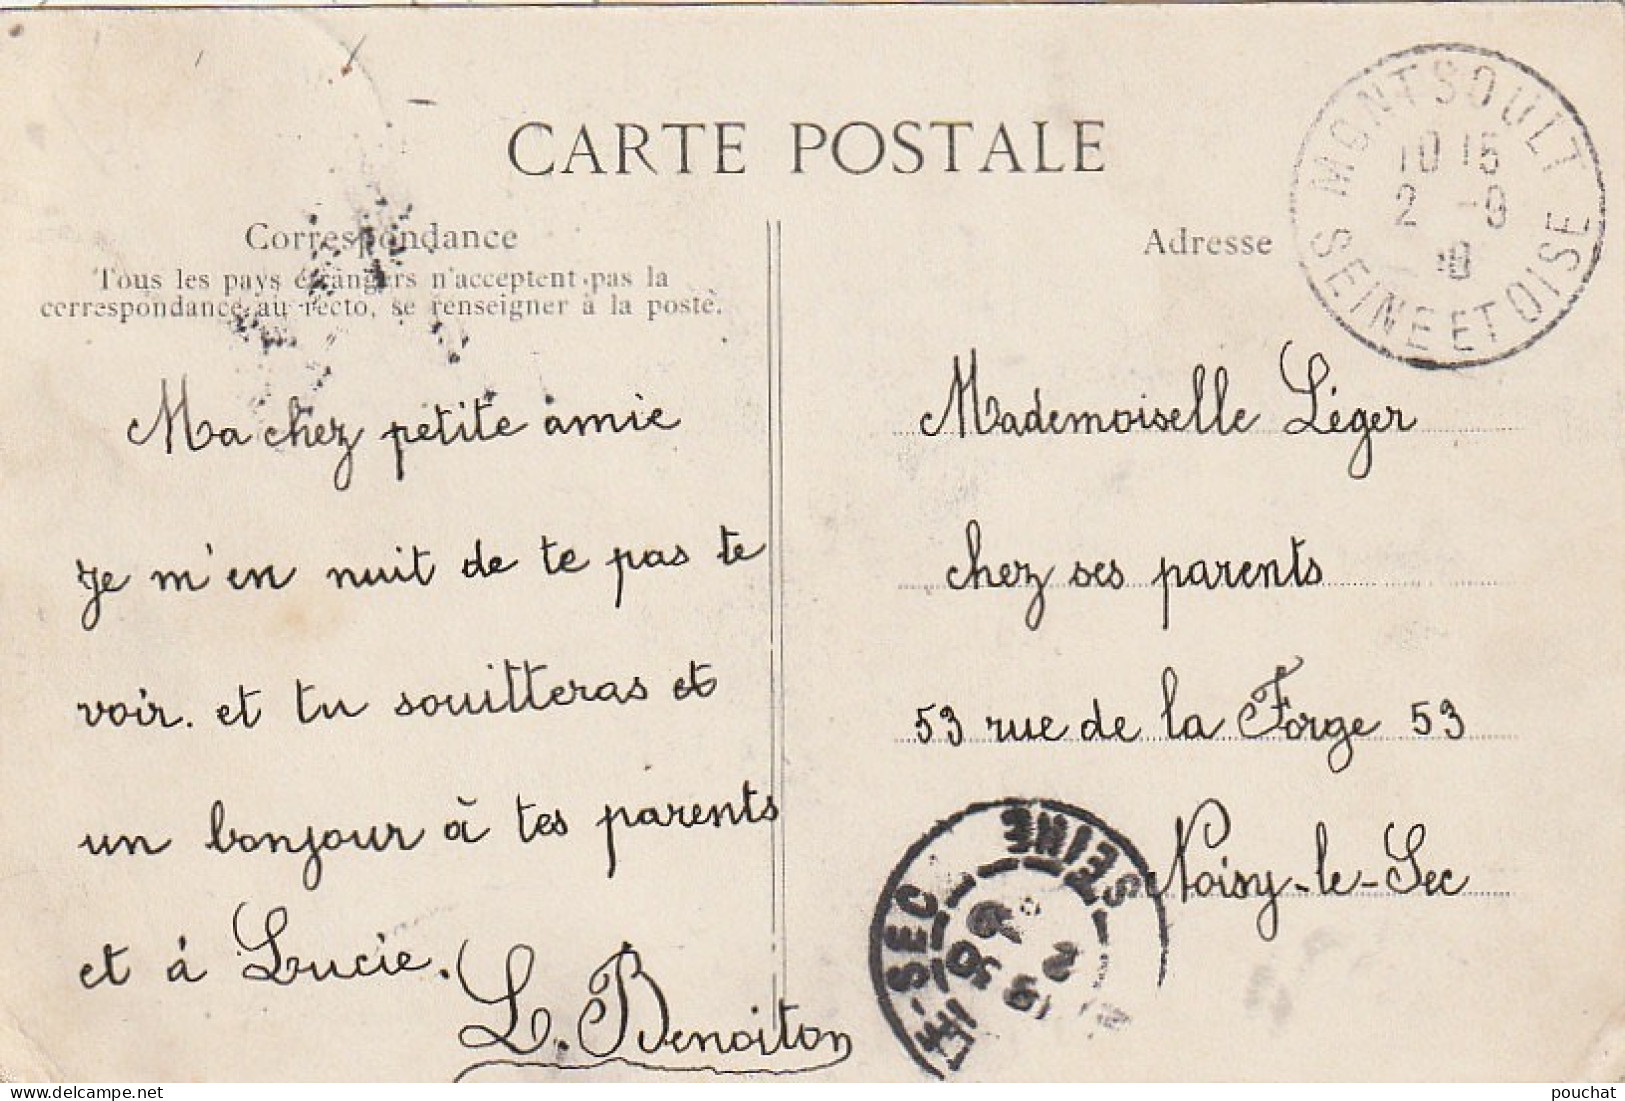 CARTE POSTALE
Correspondance
Tous les pays étrangers n'acceptent pas la
correspondance au recto, se renseigner à la poste.
Ma chez petite amie
Je m'en nuit de te pas te
voir. et tu souitteras et
un bonjour à tes parents
et à Lucie.
L. Benoiton
Adresse
MONTSOULT
10 15
2 -9
10
SEINE ET OISE
Mademoiselle Léger
chez ses parents
53 rue de la Forge 53
Noisy-le-Sec
LE-SEC
SEINE
pouchat